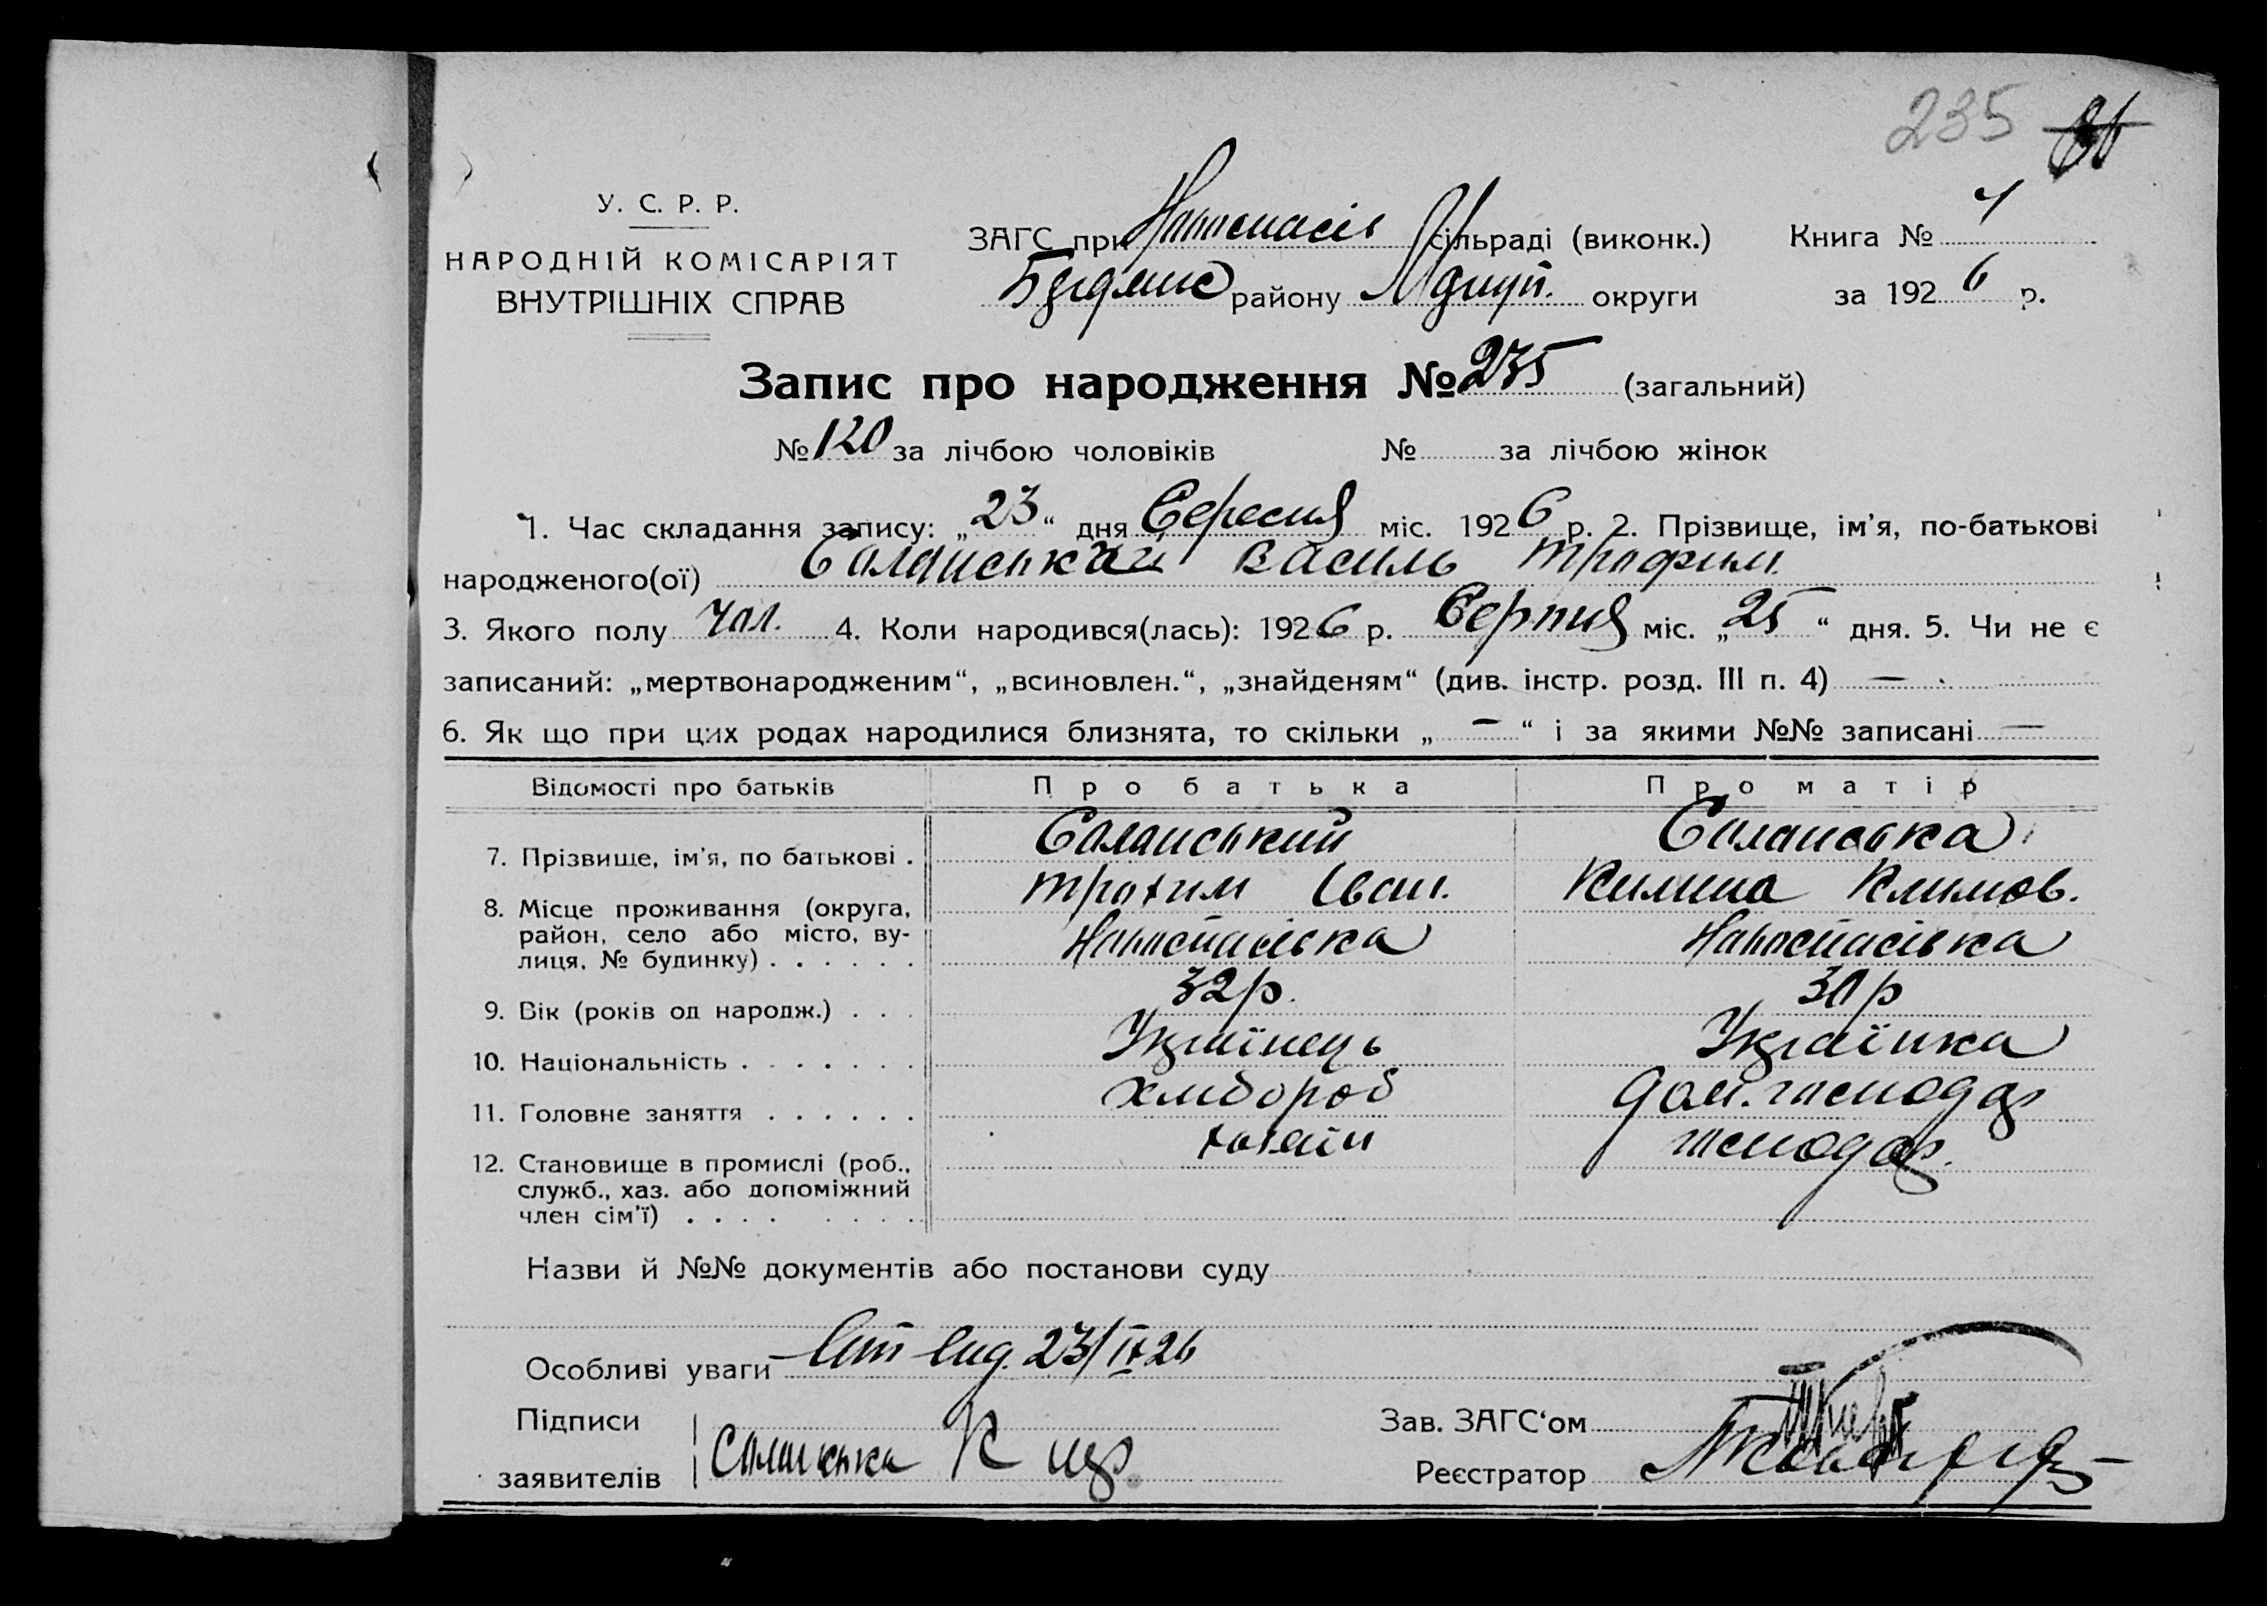 235 86
У. С. Р. Р.
НАРОДНІЙ КОМІСАРІЯТ
ВНУТРІШНІХ СПРАВ
ЗАГС при Новоспасів сільраді (виконк.) Книга №
району округи за 1926 р.
Запис про народження № 235 (загальний)
№ 120 за лічбою чоловіків № за лічбою жінок
1. Час складання запису: „23“ дня Вересня міс. 1926 р. 2. Прізвище, ім'я, по-батькові
народженого(ої) Василь Трофим.
3. Якого полу Чол. 4. Коли народився(лась): 1926 р. Серпня міс. „25“ дня. 5. Чи не є
записаний: „мертвонародженим“, „всиновлен.“, „знайденям“ (див. інстр. розд. III п. 4) —
6. Як що при цих родах народилися близнята, то скільки „—“ і за якими №№ записані —
Відомості про батьків Про батька Про матір
7. Прізвище, ім'я, по батькові . Саланський Саланська
Трохим Іван. Килина Климов.
8. Місце проживання (округа,
район, село або місто, ву-
лиця, № будинку) . . . . . . Новоспасівка Новоспасівка
9. Вік (років од народж.) . . . 32 р. 30 р
10. Національність . . . . . . . Українець Українка
11. Головне заняття . . . . . . хлібороб дом. господар
12. Становище в промислі (роб.,
служб., хаз. або допоміжний
член сім'ї) . . . . . . . . хазяін господар.
Назви й №№ документів або постанови суду
Особливі уваги 23/IX 26
Підписи
заявителів Саланська К
Зав. ЗАГС‘ом
Реєстратор